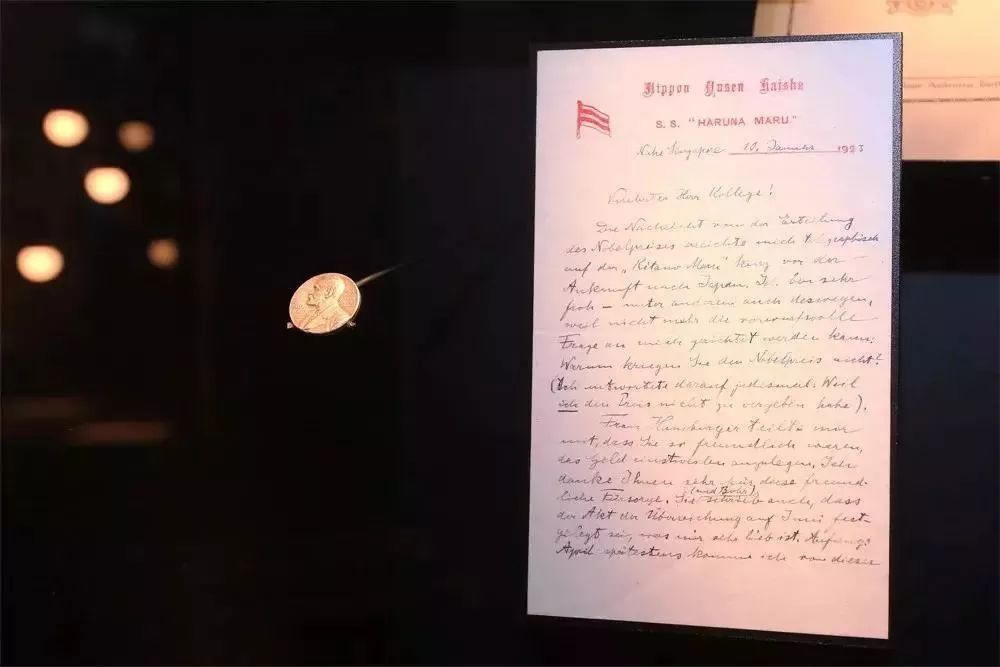 Nippon Yusen Kaisha
S. S. "HARUNA MARU."
Nahe Singapore 10. Januar 1923
Verehrter Herr Kollege!
Die Nachricht von der Erteilung
des Nobelpreises erreichte mich telegraphisch
auf der „Kitano Maru" kurz vor der
Ankunft nach Japan. Ich bin sehr
froh – unter anderem auch deswegen,
weil nicht mehr die vorwurfsvolle
Frage an mich gerichtet werden kann:
Warum kriegen Sie den Nobelpreis nicht?
(Ich antwortete darauf jedesmal: Weil
ich den Preis nicht zu vergeben habe).
Frau Hamburger teilte mir
mit, dass Sie so freundlich waren,
das Geld einstweilen anzulegen. Ich
danke Ihnen sehr für diese freund-
(und Bohr)
liche Fürsorge. Sie schrieb auch, dass
der Akt der Überreichung auf Juni fest-
gelegt sei, was mir sehr lieb ist. Anfangs
April spätestens komme ich von dieser